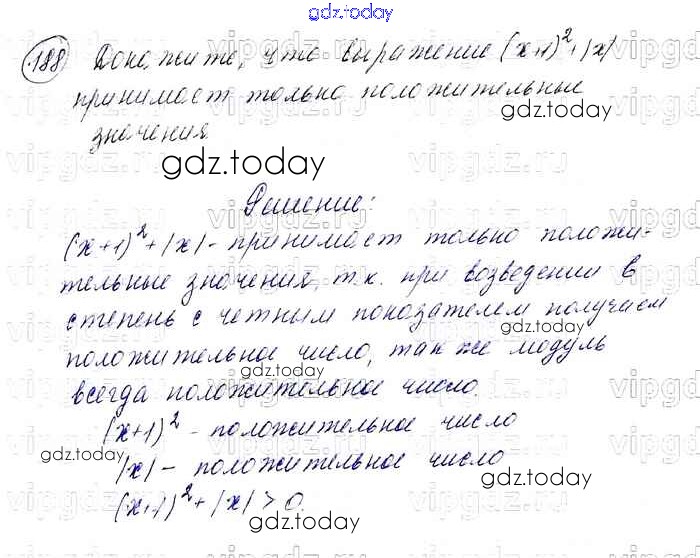 gdz.today
188 Докажите, что выражение (x+1)²+|x|
принимает только положительные
значения
gdz.today
Решение:
(x+1)²+|x| - принимает только положи-
тельные значения, т.к. при возведении в
степень с четным показателем получаем
gdz.today
положительное число, так же модуль
gdz.today
всегда положительное число.
(x+1)² - положительное число
gdz.today
|x| - положительное число
gdz.today
(x+1)²+|x|>0.
gdz.today
vipgdz.ru